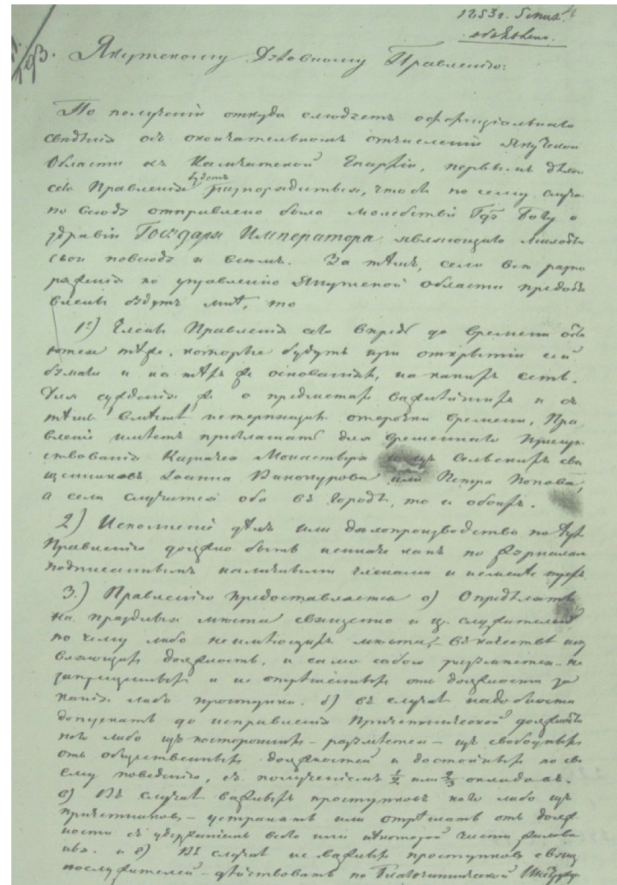 1853 г. Генваря
объявлено.
193. Якутскому Духовному Правленію:
По полученіи откуда слѣдуетъ оффиціальнаго
свѣдѣнія объ окончательномъ отчисленіи Якутской
Области къ Камчатской Епархіи, первымъ дѣломъ
сего Правленія будетъ распорядиться, чтобъ по сему случаю
по всюду отправлено было молебствіе Гду Богу о
здравіи Государя Императора, являющаго милость
свои повсюду и всѣмъ. За тѣмъ, если все распо
ряженія по управленію Якутской области предоста
влены будутъ мнѣ, то
1е) Члены Правленія сіи впредь до времени оста
ются тѣже, которые будутъ при открытіи сей
бумаги и на тѣхъ же основаніяхъ, на какихъ есть.
Для сужденія же о предметахъ важнѣйшихъ и съ
тѣмъ вмѣстѣ нетерпящихъ отсрочки времени, Пра
вленіе имѣетъ приглашать для временнаго присут
ствованія Казначея Монастыря Сельскихъ свя
щенниковъ Іоанна Винокурова или Петра Попова,
а если случатся оба въ городѣ, то и обоихъ.
2) Исполненіе дѣлъ или дѣлопроизводство по
Правленію должно быть неиначе какъ по журналамъ
подписаннымъ наличными членами и не менѣе
3.) Правленію предоставляется а) Опредѣлять
на праздныя мѣста священно и ц. служителей
по чему либо неимѣющихъ мѣста, въ качествѣ испра
вляющихъ должность, и само собою разумѣется не
запрещенныхъ и не отрѣшенныхъ отъ должности за
какія либо проступки. б) въ случаѣ надобности
допускать до исправленія Причетнической должности
кого либо изъ постороннихъ – разумѣется – изъ свободныхъ
отъ общественныхъ должностей и достойныхъ по сво
ему поведенію, съ полученіемъ ½ или ⅔ оклада ж.
в) Въ случаѣ важныхъ проступковъ кого либо изъ
причетниковъ – устранять или отрѣшать отъ долж
ности съ удержаніемъ всего или нѣкоторой части жалова
нья. и г) Въ случаѣ не важныхъ проступковъ священно
послужителей – дѣйствовать по Благочиннической Инструк